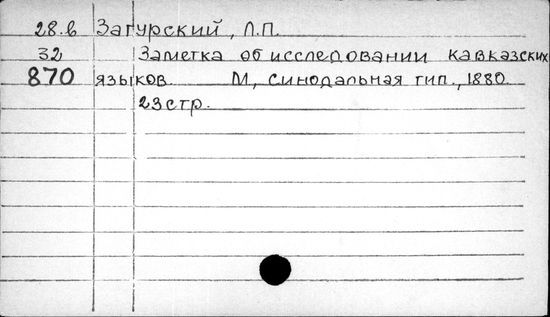 28.в Загурский, Л.П.
32 Заметка об исследовании кавказских
870 языков. М, синодальная тип., 1880.
23стр.